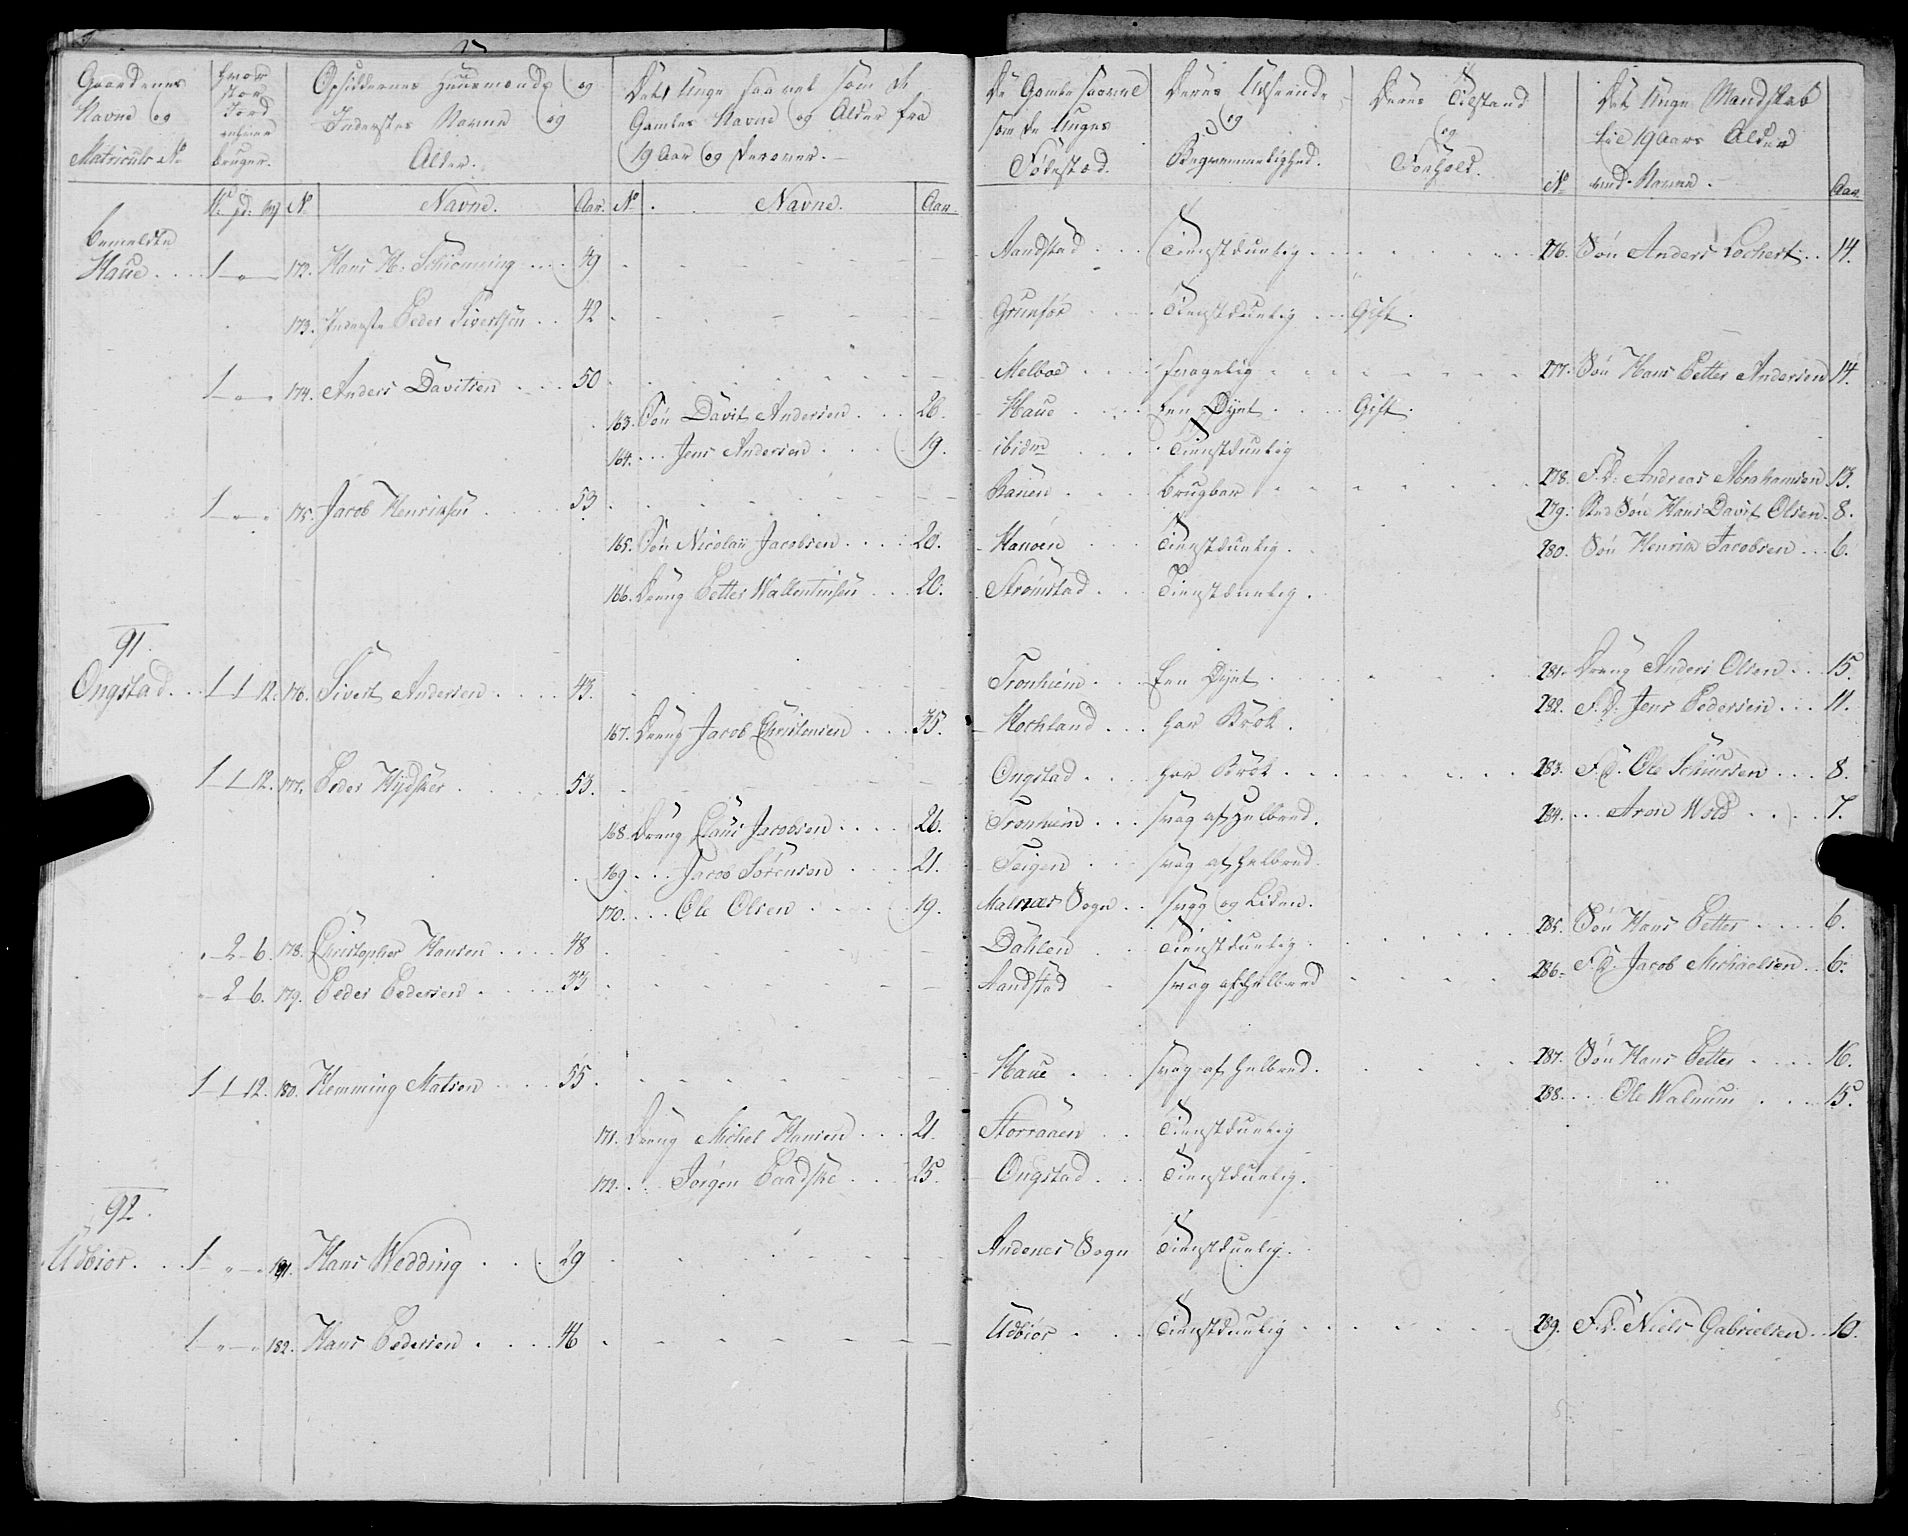 Gaardenes Navne og Matriculs No
hvor stor Jord enhver bruger.
Opsiddernes Huusmænds og Inderstes Navne og Alder.
Det Unge saavel som de Gamles Navne og Alder fra 19 Aar og derover.
De Gamle saavel som de Unges Fødestæd.
Deres Udseende og Beqvemmelighed.
Deres Tilstand og Forhold.
Det Unge Mandskab til 19 Aars Alder ved Navne.
No Navne. Aar. No Navne. Aar. No Aar
bemeldte
Haue 1 " " 172. Hans H. Schiønning 49 Aandstad Tienstduelig 276. Søn Anders Lochert 14.
173. Inderste Peder Sivertsen 42 Grunfør Tienstduelig Gift.
1 " " 174. Anders Davitsen 50 Melboe svagelig 277. Søn Hans Petter Andersen 14.
163. Søn Davit Andersen 26. Haue Een Dynt Gift.
164. Jens Andersen 19. ibidm Tienstduelig
278. F.D. Andreas Abrahamsen 13.
1 " " 175. Jacob Henriksen 53 brugbar 279. Søn Hans Davit Olsen 8.
165. Søn Nicolaii Jacobsen 20. Hanøen Tienstduelig. 280. Søn Henrik Jacobsen 6.
166. Dreng Petter Wallentinsen 20. Strømstad Tienstduelig.
91.
Ongstad 1 1 12. 176. Sivert Andersen 43. Tronhiem Een Dynt 281. Dreng Anders Olsen 15.
167. Dreng Jacob Christensen 35. Hochland har Brok. 282. F.D. Jens Pedersen 11.
1 1 12. 177. Peder Hydsker 53. Ongstad har Brok 283. F.D. Ole Schiursen 8.
168. Dreng Claus Jacobsen 26. Tronhiem svag af Helbred. 284. Aron Wold 7.
169. Jacob Sørensen 21. Teigen svag af Helbred.
170. Ole Olsen 19. Malnæs Sogn svag og Liden.
" 2 6. 178. Christopher Hansen 48 Dahlen Tienstduelig. 285. Søn Hans Petter 6.
" 2 6. 179. Peder Pedersen 33 Aandstad svag af Helbred 286. F.D. Jacob Michaelsen 6.
1 1 12. 180. Hemming Matsen 55. Haue svag af Helbred. 287. Søn Hans Petter 16.
288. Ole Walnum 15.
171. Dreng Michel Hansen 21. Storraaen Tienstduelig
172. Jørgen Baadske 25 Ongstad Tienstduelig.
92.
Udbior. 1 " " 181. Hans Wedding 29 Andenes Sogn Tienstduelig.
1 " " 182. Hans Pedersen 46 Udbior Tienstduelig 289. F.D. Niels Gabrielsen 10.